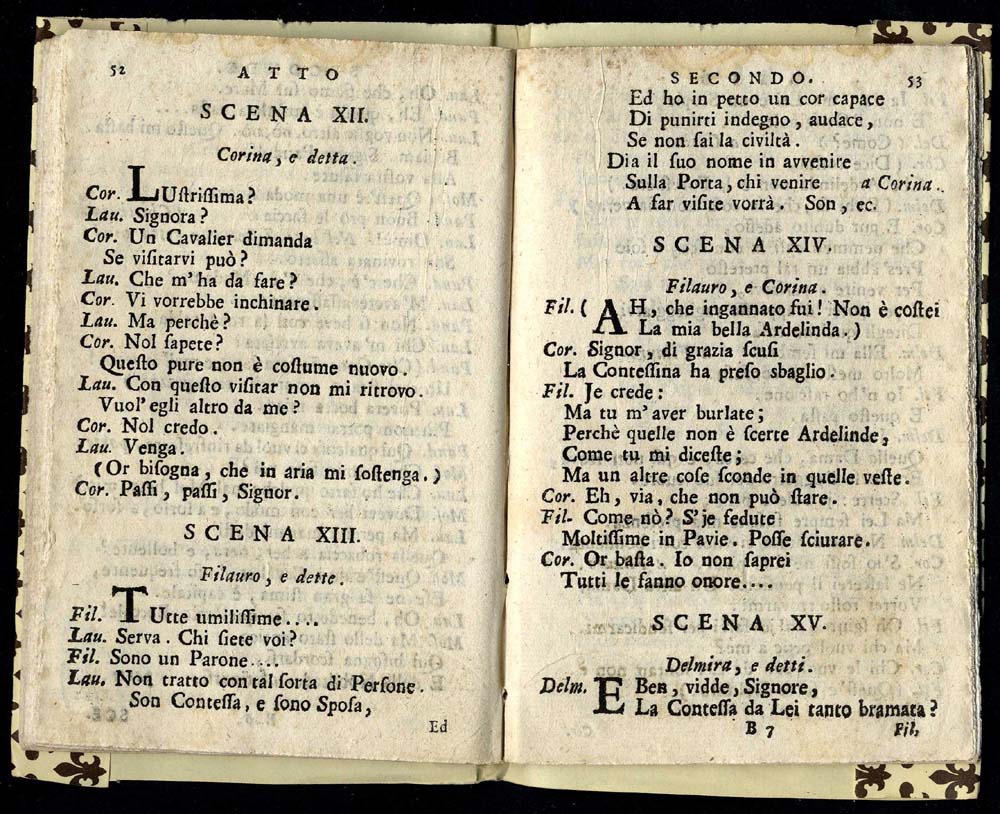 52
ATTO
SCENA XII.
Corina, e detta.
Cor. LUſtriſſima?
Lau. Signora?
Cor. Un Cavalier dimanda
Se viſitarvi può?
Lau. Che m'ha da fare?
Cor. Vi vorrebbe inchinare.
Lau. Ma perchè?
Cor. Nol ſapete?
Queſto pure non è coſtume nuovo.
Lau. Con queſto viſitar non mi ritrovo.
Vuol' egli altro da me?
Cor. Nol credo.
Lau. Venga.
(Or biſogna, che in aria mi ſoſtenga.)
Cor. Paſſi, paſſi, Signor.
SCENA XIII.
Filauro, e dette.
Fil. TUtte umiliſſime....
Lau. Serva. Chi ſiete voi?
Fil. Sono un Parone....
Lau. Non tratto con tal ſorta di Perſone.
Son Conteſſa, e ſono Spoſa,
Ed
SECONDO.
53
Ed ho in petto un cor capace
Di punirti indegno, audace,
Se non ſai la civiltà.
Dia il ſuo nome in avvenire
Sulla Porta, chi venire a Corina.
A far viſite vorrà. Son, ec.
SCENA XIV.
Filauro, e Corina.
Fil. (AH, che ingannato fui! Non è coſtei
La mia bella Ardelinda.)
Cor. Signor, di grazia ſcuſi
La Conteſſina ha preſo sbaglio.
Fil. Je crede:
Ma tu m'aver burlate;
Perchè quelle non è ſcerte Ardelinde,
Come tu mi diceſte;
Ma un altre coſe ſconde in quelle veſte.
Cor. Eh, via, che non può ſtare.
Fil. Come nò? S'je ſedute
Moltiſſime in Pavie. Poſſe ſciurare.
Cor. Or baſta. Io non ſaprei
Tutti le ſanno onore....
SCENA XV.
Delmira, e detti.
Delm. E Ben, vidde, Signore,
La Conteſſa da Lei tanto bramata?
B 7
Fil.